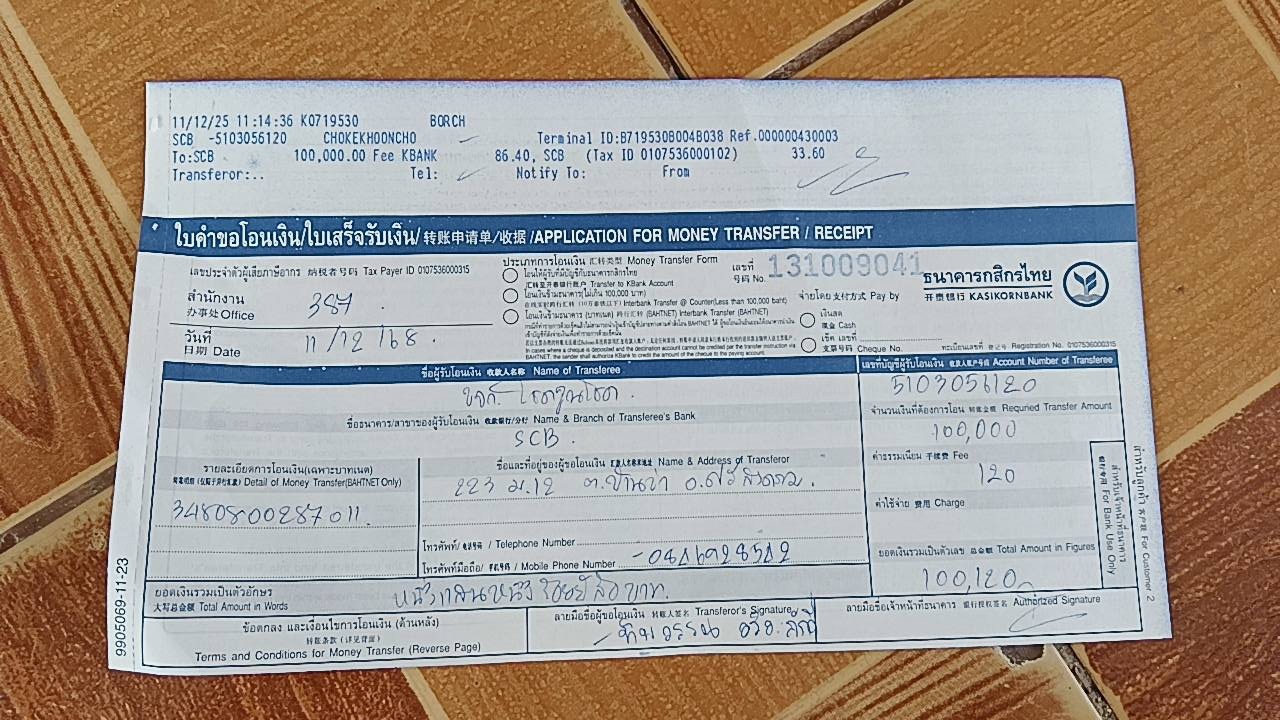 11/12/25 11:14:36 K0719530 BORCH
SCB -5103056120 CHOKEKHOONCHO Terminal ID:B719530B004B038 Ref.000000430003
To:SCB 100,000.00 Fee KBANK 86.40, SCB (Tax ID 0107536000102) 33.60
Transferor:.. Tel: Notify To: From
ใบคำขอโอนเงิน/ใบเสร็จรับเงิน/转账申请单/收据/APPLICATION FOR MONEY TRANSFER / RECEIPT
เลขประจำตัวผู้เสียภาษีอากร 纳税者号码 Tax Payer ID 0107536000315
สำนักงาน
办事处 Office 387
วันที่
日期 Date 11/12/68.
ประเภทการโอนเงิน 汇转类型 Money Transfer Form
โอนให้ผู้รับที่มีบัญชีกับธนาคารกสิกรไทย
汇转至开泰银行账户 Transfer to KBank Account
โอนเงินข้ามธนาคาร(ไม่เกิน 100,000 บาท)
Interbank Transfer @ Counter(Less than 100,000 baht)
โอนเงินข้ามธนาคาร (บาทเนต) 跨行汇转 (BAHTNET) Interbank Transfer (BAHTNET)
In cases where a cheque is deposited and the destination account cannot be credited per the transfer instruction via
BAHTNET, the sender shall authorize KBank to credit the amount of the cheque to the paying account.
เลขที่
号码 No. 131009041
จ่ายโดย 支付方式 Pay by
เงินสด
现金 Cash
เช็ค เลขที่
支票号码 Cheque No.
ธนาคารกสิกรไทย
开泰银行 KASIKORNBANK
ทะเบียนเลขที่ 登记号 Registration No. 0107536000315
ชื่อผู้รับโอนเงิน 收款人名称 Name of Transferee
หจก. โชคคูณโชค.
เลขที่บัญชีผู้รับโอนเงิน 收款人账户号码 Account Number of Transferee
5103056120
ชื่อธนาคาร/สาขาของผู้รับโอนเงิน 收款银行/分行 Name & Branch of Transferee's Bank
SCB.
จำนวนเงินที่ต้องการโอน 转账金额 Requried Transfer Amount
100,000
รายละเอียดการโอนเงิน(เฉพาะบาทเนต)
Detail of Money Transfer(BAHTNET Only)
3480800287011.
ชื่อและที่อยู่ของผู้ขอโอนเงิน 汇款人名称地址 Name & Address of Transferor
223 ม.12 ต.บ้านข่า อ.ศรีสงคราม.
ค่าธรรมเนียม 手续费 Fee
120
ค่าใช้จ่าย 费用 Charge
โทรศัพท์/ 电话号码 / Telephone Number
โทรศัพท์มือถือ/ 手机号码 / Mobile Phone Number
ยอดเงินรวมเป็นตัวเลข 总金额 Total Amount in Figures
100,120
ยอดเงินรวมเป็นตัวอักษร
大写总金额 Total Amount in Words หนึ่งแสนหนึ่งร้อยยี่สิบบาท.
ข้อตกลง และเงื่อนไขการโอนเงิน (ด้านหลัง)
转账条款 (详见背面)
Terms and Conditions for Money Transfer (Reverse Page)
ลายมือชื่อผู้ขอโอนเงิน 转账人签名 Transferor's Signature
ลายมือชื่อเจ้าหน้าที่ธนาคาร 银行授权签名 Authorized Signature
สำหรับเจ้าหน้าที่ธนาคาร
银行专用 For Bank Use Only
สำหรับลูกค้า 客户联 For Customer 2
9905069-11-23